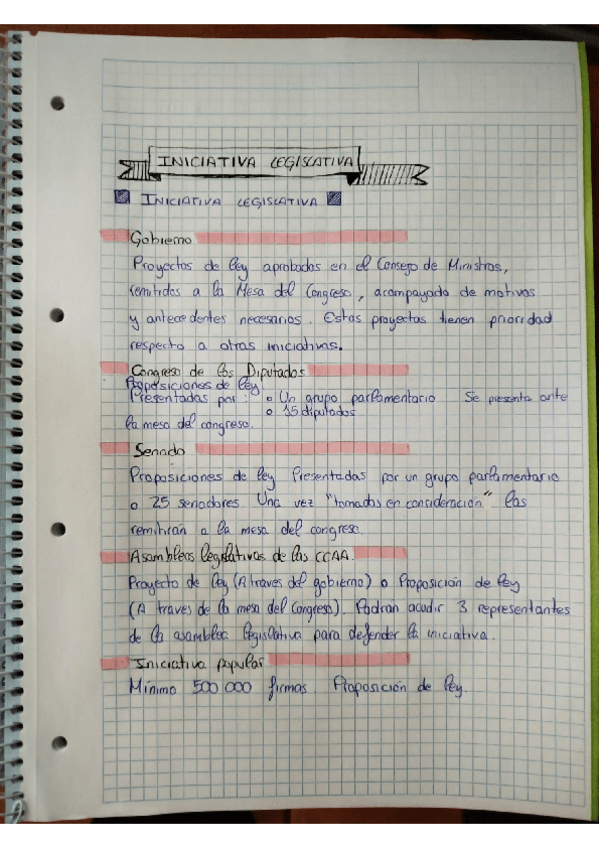 INICIATIVA LEGISLATIVA
INICIATIVA LEGISLATIVA
Gobierno
Proyectos de ley aprobados en el Consejo de Ministros,
remitidos a la Mesa del Congreso, acompañado de motivos
y antecedentes necesarios. Estos proyectos tienen prioridad
respecto a otras iniciativas.
Congreso de los Diputados
Proposiciones de ley
Presentadas por: o Un grupo parlamentario Se presenta ante
o 15 diputados
la mesa del congreso.
Senado
Proposiciones de ley Presentadas por un grupo parlamentario
o 25 senadores. Una vez "tomadas en consideración" las
remitirán a la mesa del congreso.
Asambleas legislativas de las CCAA.
Proyecto de ley (A traves del gobierno) o Proposición de ley
(A traves de la mesa del Congreso). Podran acudir 3 representantes
de la asamblea legislativa para defender la iniciativa.
Iniciativa popular
Mínimo 500 000 firmas. Proposición de ley.